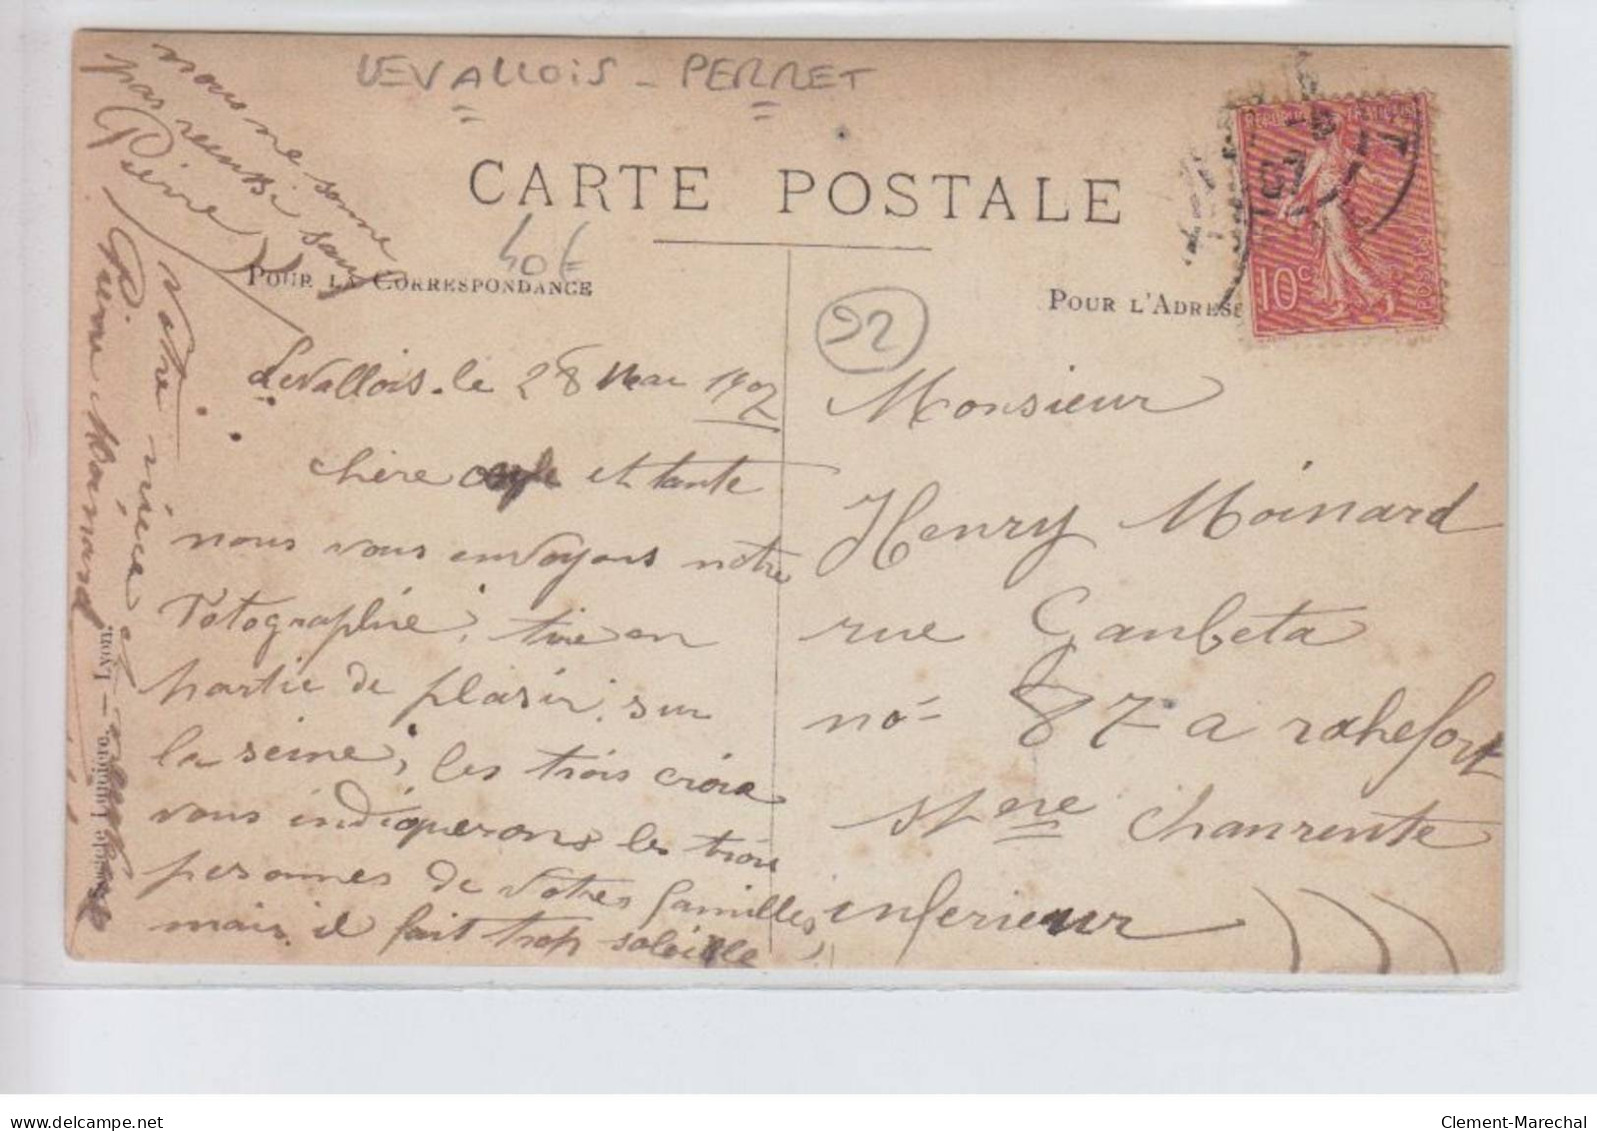 LEVALLOIS - PERRET
CARTE POSTALE
40€
POUR LA CORRESPONDANCE
POUR L'ADRESSE
92
10c
POSTES
Levallois. le 28 Mai 1907
chère et tante
nous vous envoyons notre
Fotographie, tire en
partie de plaisir. sur
la seine, les trois croix
vous indiquerons les trois
personnes de votres familles,
mais il fait trop soleille
nous ne somme
pas reussi sauf
Pierre
Votre nièce et
Pierre Moinard
Monsieur
Henry Moinard
rue Ganbeta
no- 87 a rochefort
chanrente
inferieur
Lumière, — Lyon.
Clement-Marechal